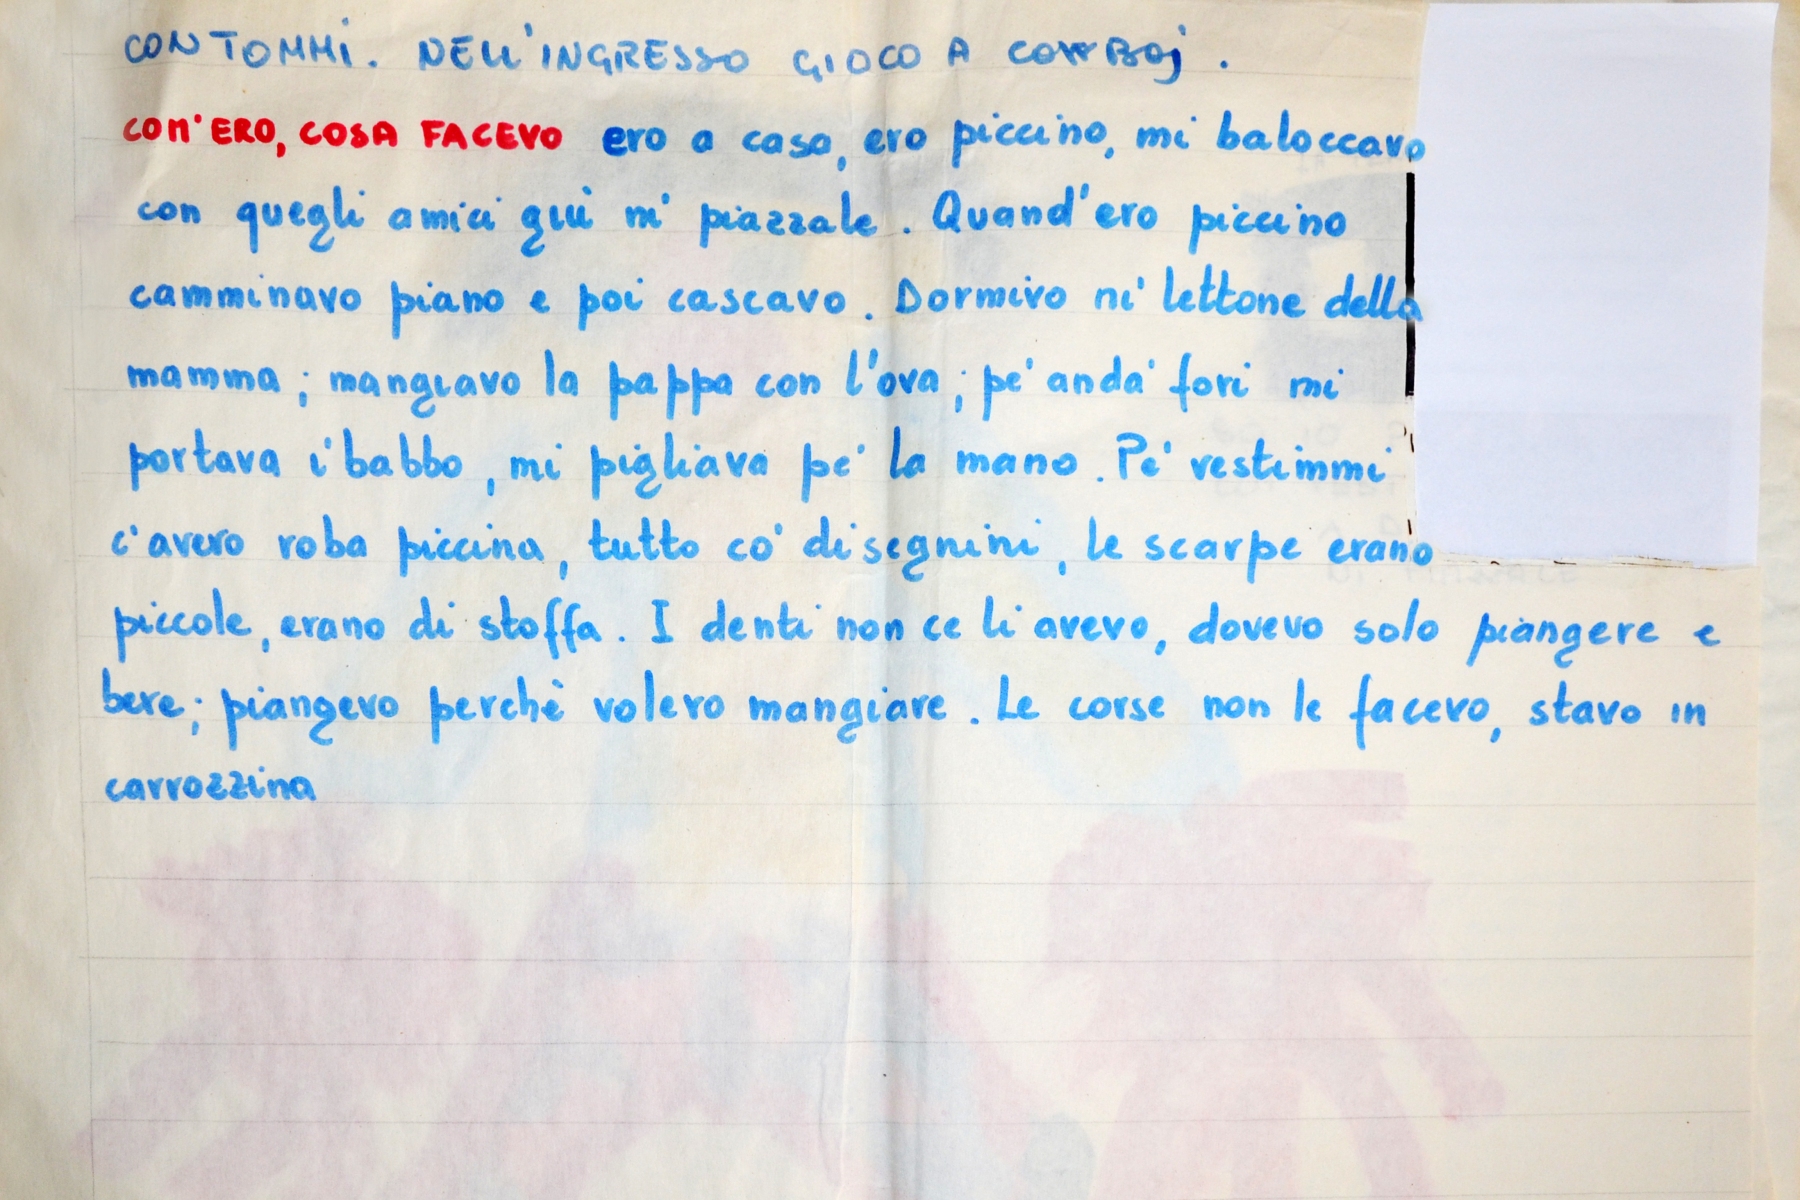 CON TOMMI. NELL'INGRESSO GIOCO A COWBOJ.
COM'ERO, COSA FACEVO ero a casa, ero piccino, mi baloccavo
con quegli amici giù ni' piazzale. Quand'ero piccino
camminavo piano e poi cascavo. Dormivo ni' lettone della
mamma; mangiavo la pappa con l'ova; pe' anda' fori mi
portava i' babbo, mi pigliava pe' la mano. Pe' vestimmi
c'avevo roba piccina, tutto co' disegnini, le scarpe erano
piccole, erano di stoffa. I denti non ce li avevo, dovevo solo piangere e
bere; piangevo perchè volevo mangiare. Le corse non le facevo, stavo in
carrozzina